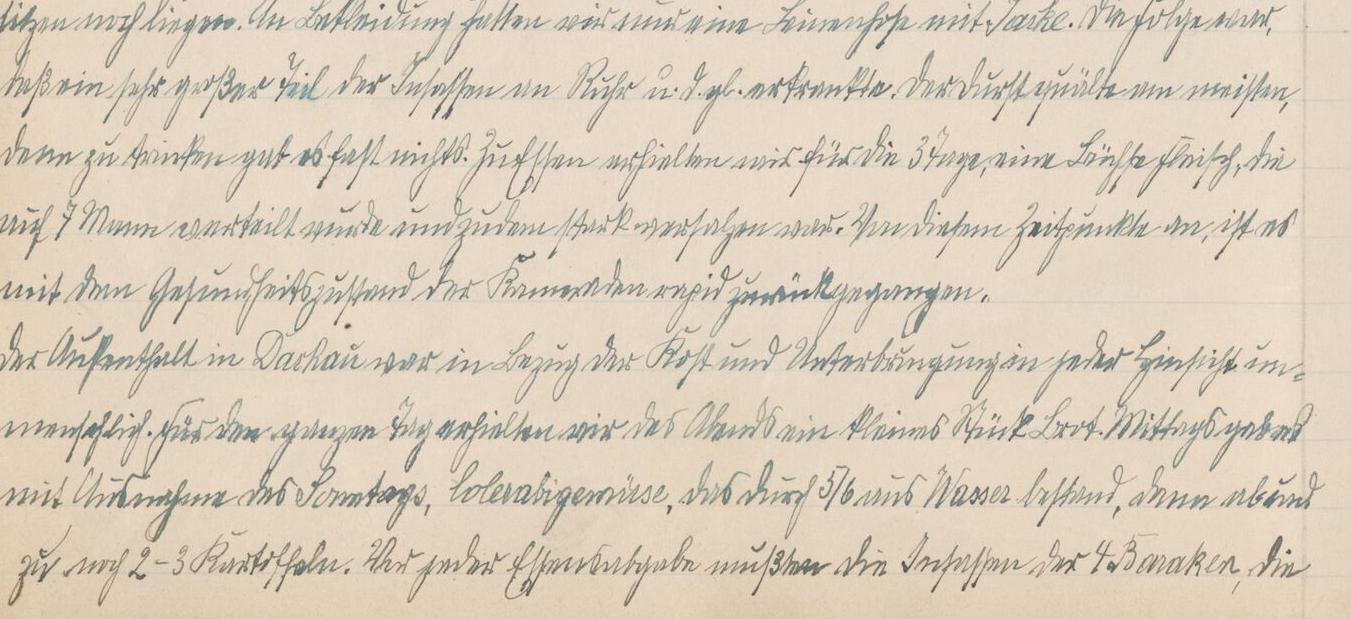 sitzen noch liegen. An Bekleidung hatten wir nur eine Leinenhose mit Jacke. Die Folge war,
daß ein sehr großer Teil der Insassen an Ruhr u. d. gl. erkrankte. Der Durst quälte am meisten,
denn zu trinken gab es fast nichts. Zu Essen erhielten wir für die 3 Tage, eine Büchse Fleisch, die
auf 7 Mann verteilt wurde und zudem stark versalzen war. Von diesem Zeitpunkte an, ist es
mit dem Gesundheitszustand der Kameraden rapid zurückgegangen.
Der Aufenthalt in Dachau war in Bezug der Kost und Unterbringung in jeder Hinsicht un-
menschlich. Für den ganzen Tag erhielten wir des Abends ein kleines Stück Brot. Mittags gab es
mit Ausnahme des Sonntags, Colerabigemüse, das durch 5/6 aus Wasser bestand, dann ab und
zu noch 2-3 Kartoffeln. Vor jeder Essensabgabe mußten die Insassen der 4 Baraken, die